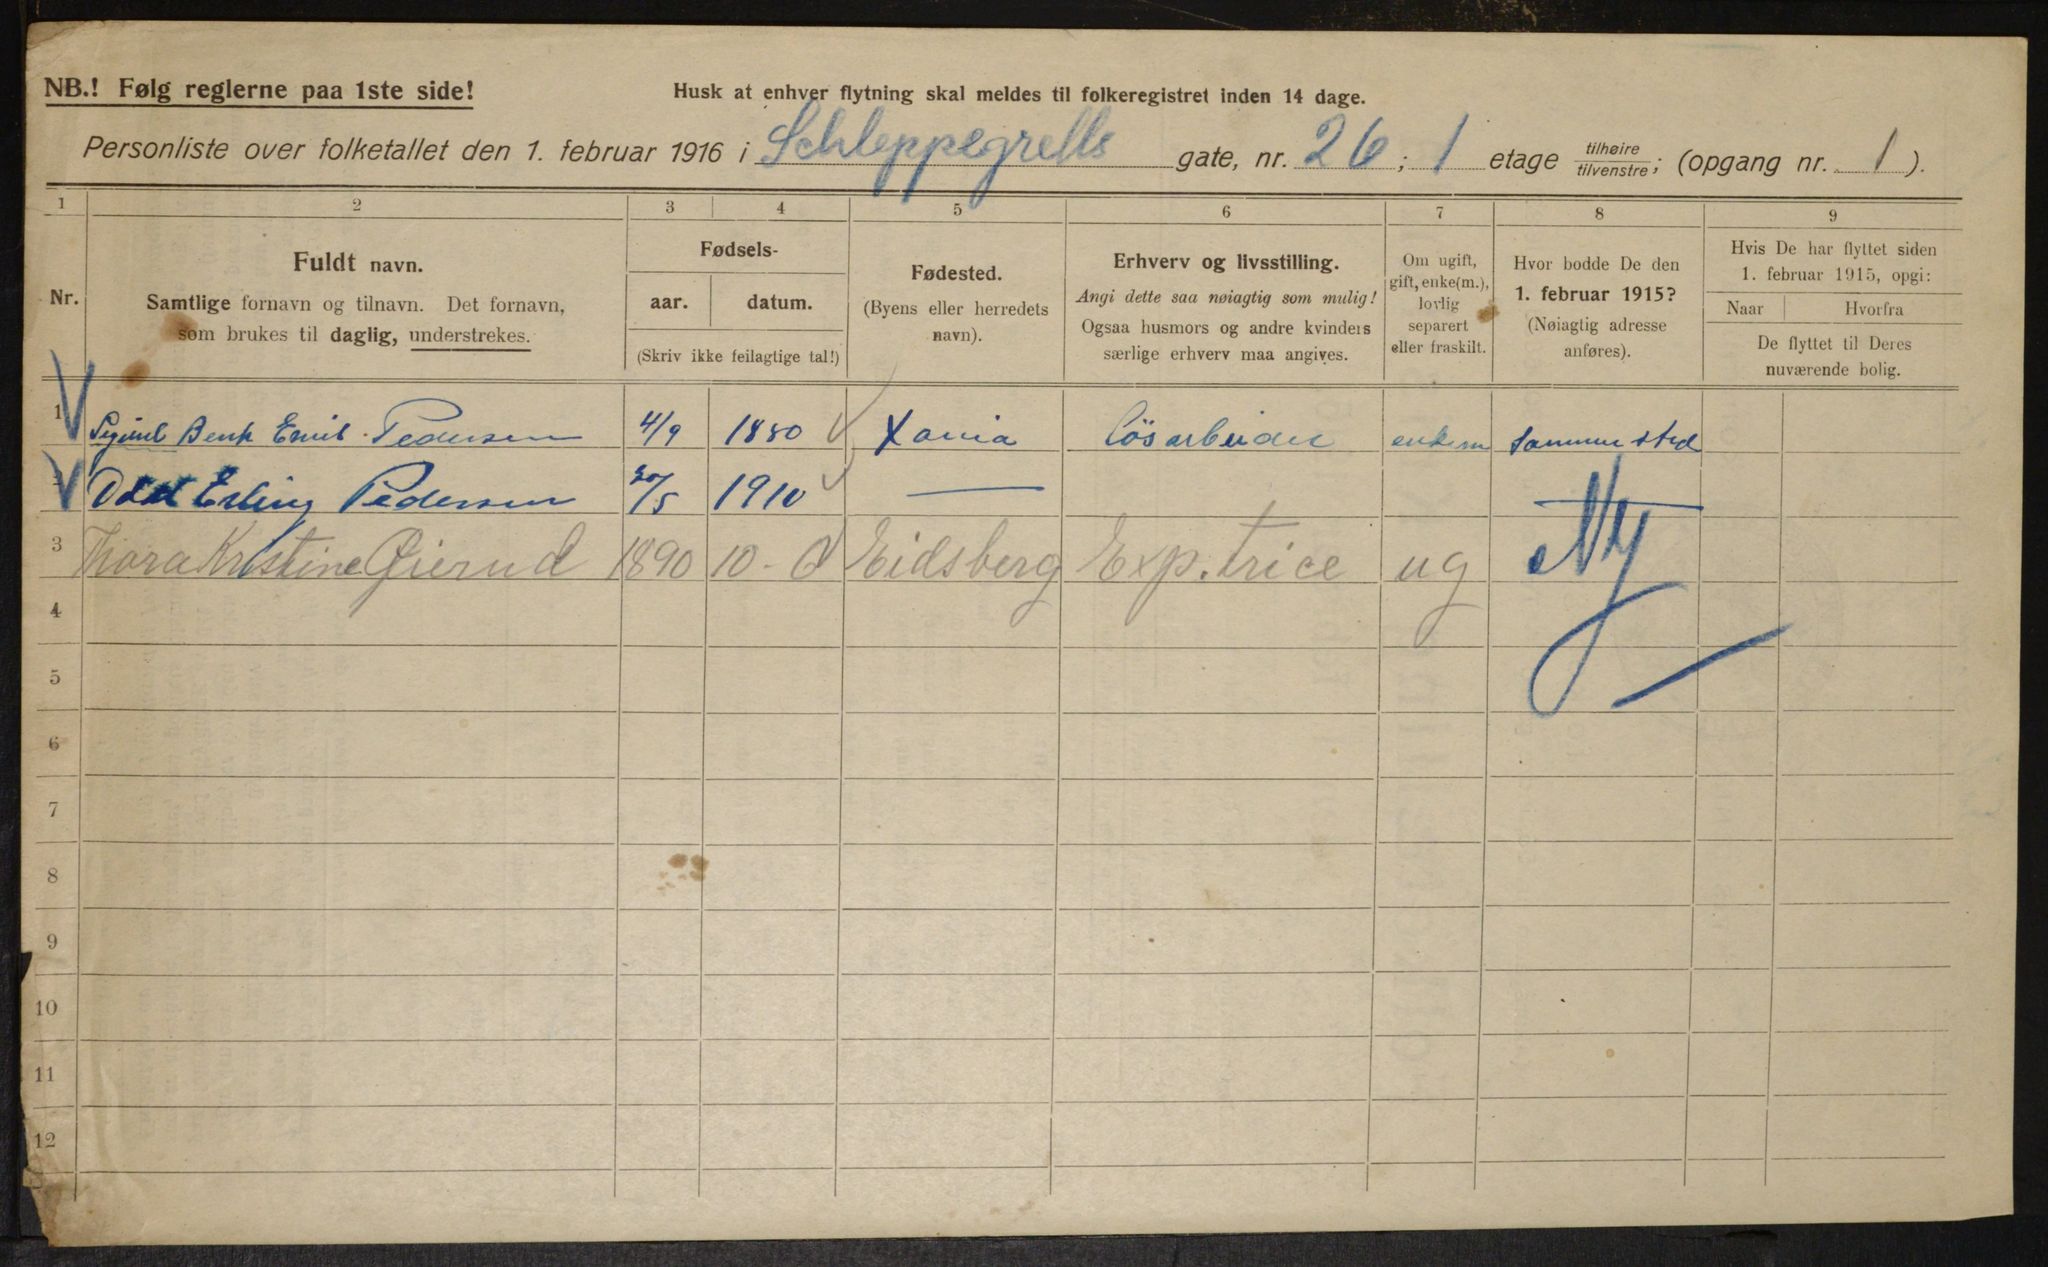 NB.! Følg reglerne paa 1ste side!
Husk at enhver flytning skal meldes til folkeregistret inden 14 dage.
Personliste over folketallet den 1. februar 1916 i Schleppegrells gate, nr. 26; 1 etage tilhøire/tilvenstre; (opgang nr. 1).
1 2 3 4 5 6 7 8 9
Nr.
Fuldt navn.
Samtlige fornavn og tilnavn. Det fornavn,
som brukes til daglig, understrekes.
Fødsels-
aar. datum.
(Skriv ikke feilagtige tal!)
Fødested.
(Byens eller herredets
navn).
Erhverv og livsstilling.
Angi dette saa nøiagtig som mulig!
Ogsaa husmors og andre kvinders
særlige erhverv maa angives.
Om ugift,
gift, enke(m.),
lovlig
separert
eller fraskilt.
Hvor bodde De den
1. februar 1915?
(Nøiagtig adresse
anføres).
Hvis De har flyttet siden
1. februar 1915, opgi:
Naar Hvorfra
De flyttet til Deres
nuværende bolig.
1 Emil Pedersen 4/9 1880 Xania Løsarbeider enkem sammested
2 Odd Erling Pedersen 20/5 1910 —
3 Thora Kristine Gierud 1890 10- Eidsberg Exp.trice ug Ny
4
5
6
7
8
9
10
11
12